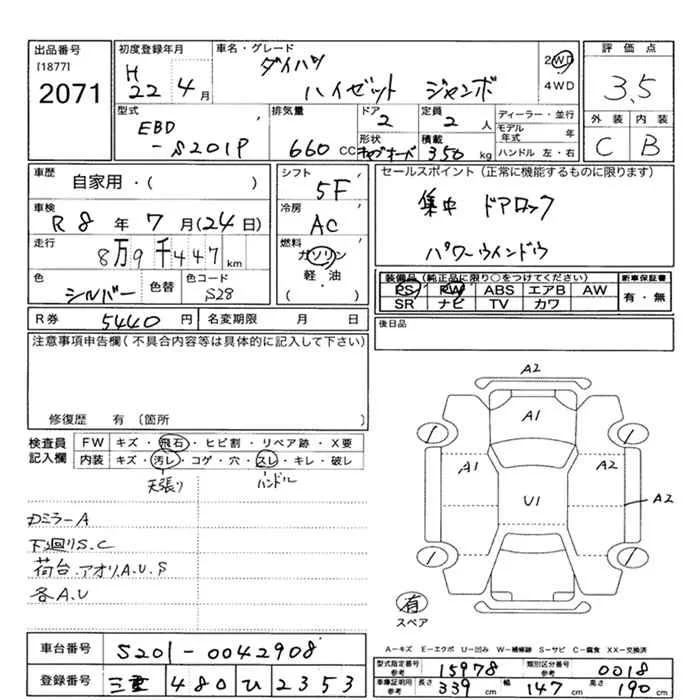 出品番号 初度登録年月 車名・グレード 評価点
[1877] 2071 H22 4月 ダイハツ ハイゼット ジャンボ 2WD 4WD 3.5
型式 排気量 ドア 定員 ディーラー・並行 外装 内装
EBD-S201P 660cc 2 2人 モデル年式 年 C B
形状 積載 350kg ハンドル 左・右
車歴 自家用・( ) シフト 5F セールスポイント(正常に機能するものに限ります)
車検 R8年7月(24日) 冷房 AC 集中 ドアロック
走行 8万9千447km 燃料 ガソリン 軽・油 ( ) パワーウインドウ
色 シルバー 色替 色コード S28
装備品(純正品に限り○をつけてください) 新車保証書
PS PW ABS エアB AW 有・無
SR ナビ TV カワ
R券 5440円 名変期限 月 日 後日品
注意事項申告欄(不具合内容等は具体的に記入して下さい)
修復歴 有(箇所 )
検査員記入欄 FW キズ・飛石・ヒビ割・リペア跡・X要
内装 キズ・汚レ・コゲ・穴・スレ・キレ・破レ
天張り ハンドル
カミラーA
下廻りS.C
荷台.アオリA.U.S
各A.U
A2
A1
A1 A2
U1
A2
有
スペア
A−キズ E−エクボ U−凹み W−補修跡 S−サビ C−腐食 XX−交換済
車台番号 S201-0042908
登録番号 三重 480 ひ 2353
型式指定番号 参考 15978 類別区分番号 参考 0018
車庫証明用 参考 長さ 339cm 幅 147cm 高さ 190cm